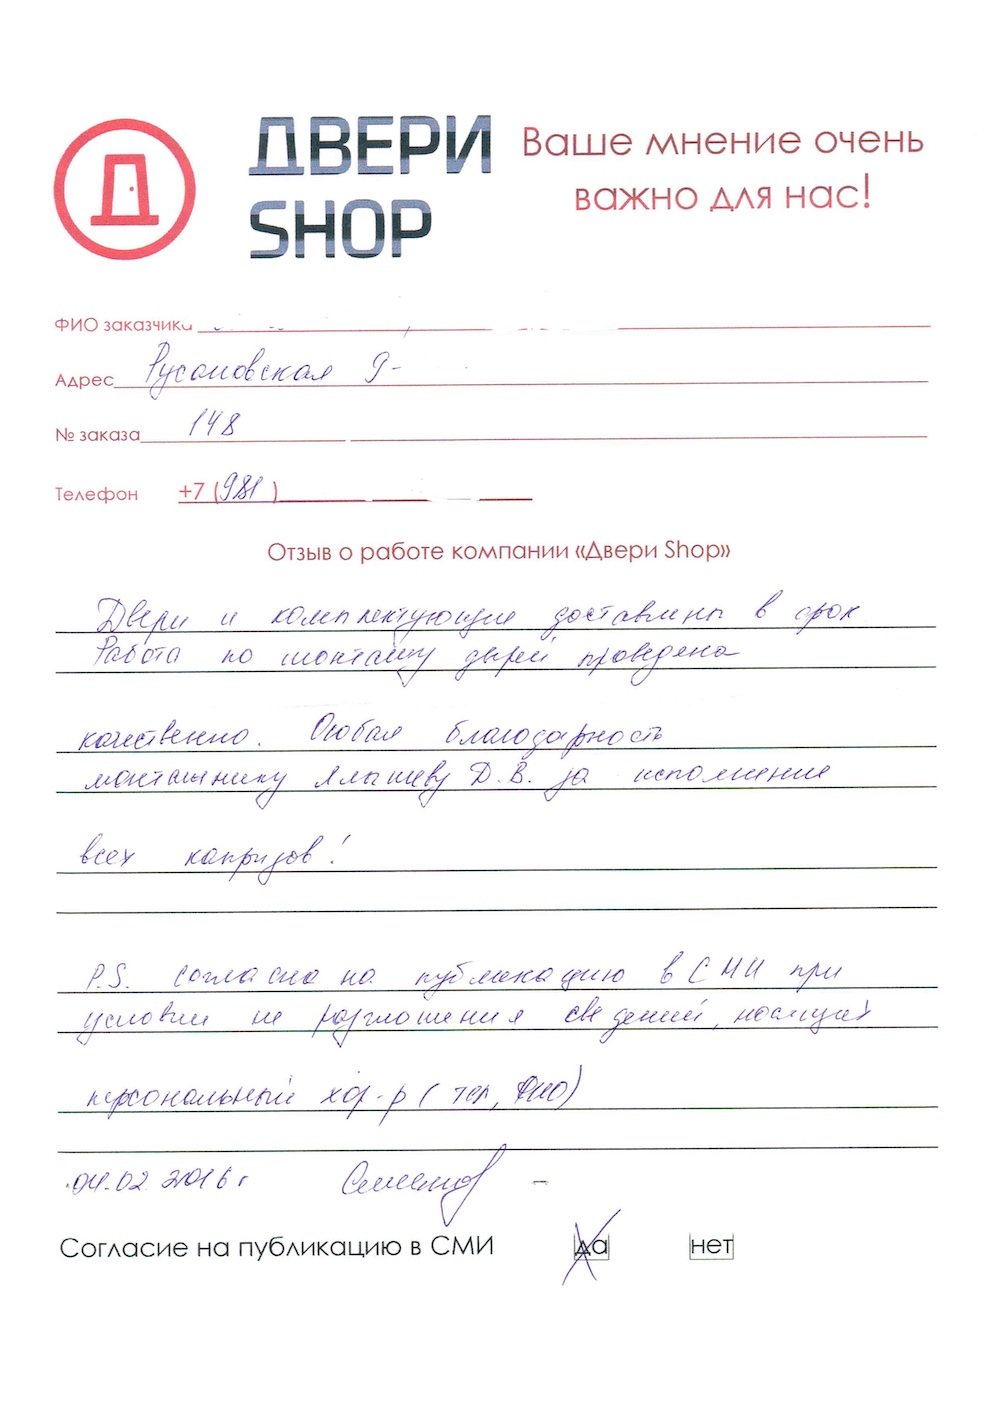 ДВЕРИ
SHOP
Ваше мнение очень
важно для нас!
ФИО заказчика
Адрес Русановская 9-
№ заказа 148
Телефон +7 (981)
Отзыв о работе компании «Двери Shop»
Двери и комплектующие доставлены в срок
Работа по монтажу дверей проведена
качественно. Особая благодарность
монтажнику Ялышеву Д.В. за исполнение
всех капризов!
P.S. согласна на публикацию в СМИ при
условии не разглашения сведений, носящих
персональный хар-р (тел, ФИО)
04.02.2016 г
Согласие на публикацию в СМИ да нет